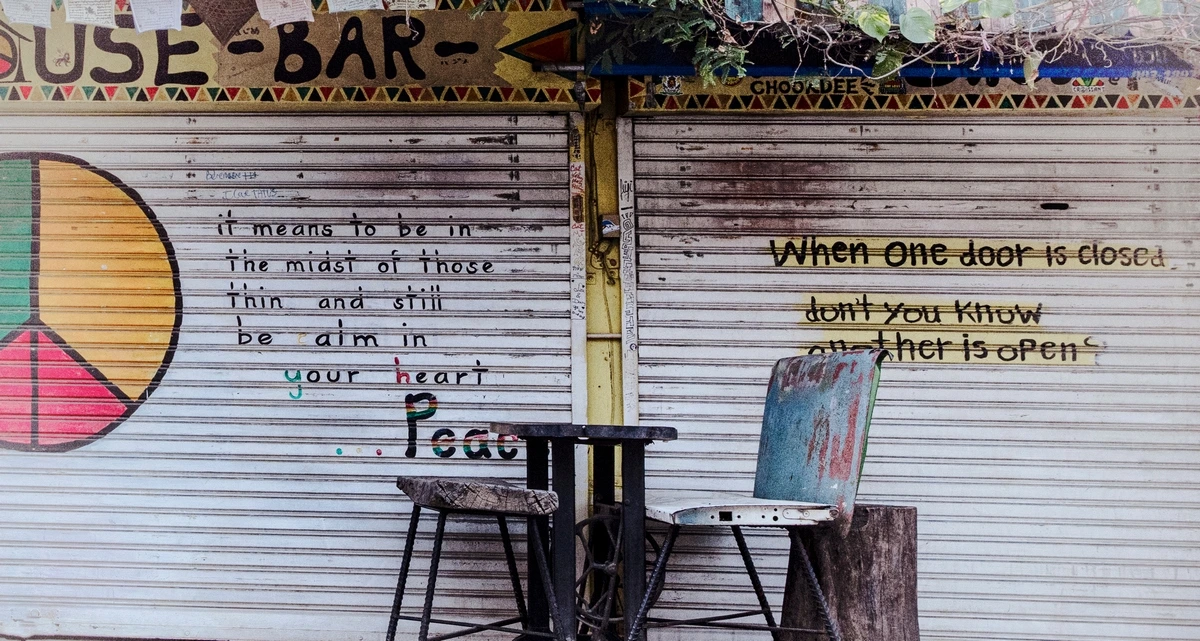 USE - BAR -
CHOOKDEE
it means to be in
the midst of those
thin and still
be calm in
your heart
... Peac
When one door is closed
don't you know
another is open